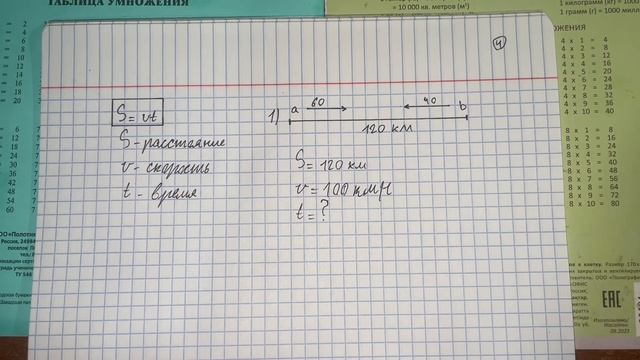 ТАБЛИЦА УМНОЖЕНИЯ
= 10 000 кв. метров (м²)
1 килограмм (кг) = 1000
1 грамм (г) = 1000 милл
= 2
= 4
= 6
= 8
= 10
= 12
= 14
= 16
= 18
= 20
6 7
12 7
18 7
24 7
30 7
36 7
42 7
48 7
54 7
60 7
4
S = vt
S - расстояние
v - скорость
t - время
1) a 60 40 b
120 км
S = 120 км
v = 100 км/ч
t = ?
4 x 1 = 4
4 x 2 = 8
4 x 3 = 12
4 x 4 = 16
4 x 5 = 20
4 x 6 = 24
4 x 7 = 28
4 x 8 = 32
4 x 9 = 36
4 x 10 = 40
8 x 1 = 8
8 x 2 = 16
8 x 3 = 24
8 x 4 = 32
8 x 5 = 40
8 x 6 = 48
8 x 7 = 56
8 x 8 = 64
8 x 9 = 72
8 x 10 = 80
Россия, 24994
ТУ 548
в клетку. Размер 170x
EAC
Изготовлено
09.2023